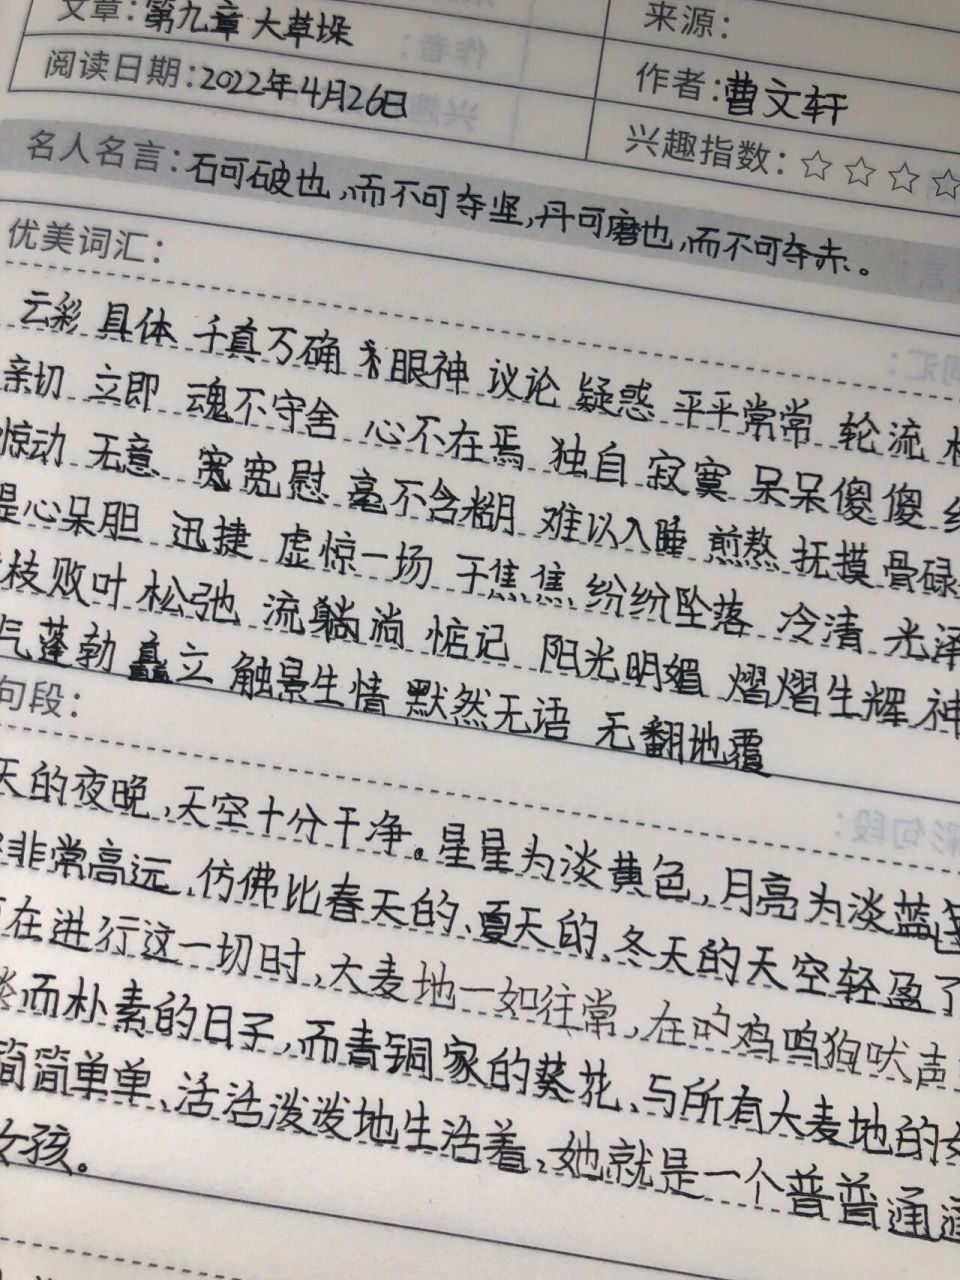 文章:第九章 大草垛
来源:
阅读日期:2022年4月26日
作者:曹文轩
兴趣指数:☆☆☆☆
名人名言:石可破也,而不可夺坚,丹可磨也,而不可夺赤。
优美词汇:
云彩 具体 千真万确 眼神 议论 疑惑 平平常常 轮流
亲切 立即 魂不守舍 心不在焉 独自 寂寞 呆呆傻傻
惊动 无意 宽慰 毫不含糊 难以入睡 煎熬 抚摸 骨碌
提心呆胆 迅捷 虚惊一场 干焦焦 纷纷坠落 冷清 光泽
枝败叶 松弛 流淌 惦记 阳光明媚 熠熠生辉 神
气蓬勃 矗立 触景生情 默然无语 无翻地覆
句段:
天的夜晚,天空十分干净。星星为淡黄色,月亮为淡蓝
非常高远,仿佛比春天的、夏天的、冬天的天空轻盈了
在进行这一切时,大麦地一如往常,在的鸡鸣狗吠声
淡而朴素的日子,而青铜家的葵花、与所有大麦地的女
简简单单、活活泼泼地生活着,她就是一个普普通通
女孩。